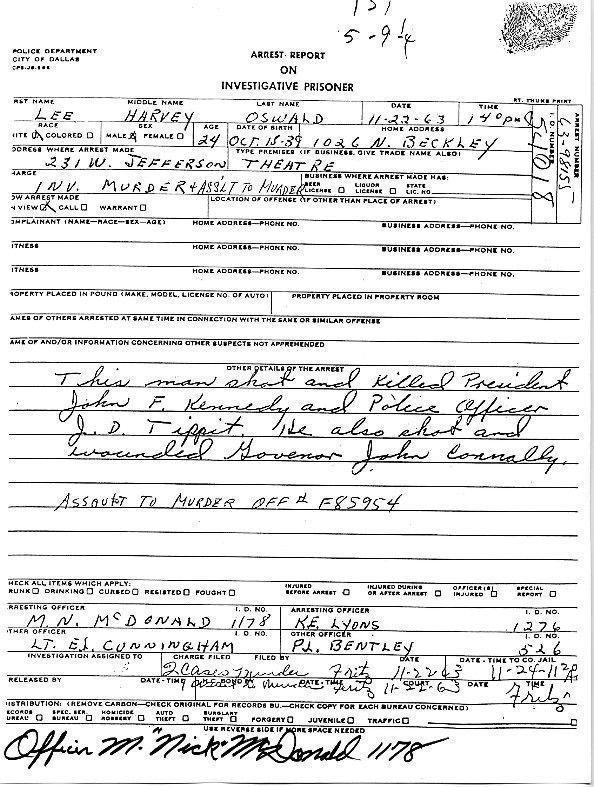 131
5-9 1/4
POLICE DEPARTMENT
CITY OF DALLAS
ARREST REPORT
ON
INVESTIGATIVE PRISONER
RST NAME MIDDLE NAME LAST NAME DATE TIME RT. THUMB PRINT
LEE HARVEY OSWALD 11-22-63 1 40 PM
RACE SEX AGE DATE OF BIRTH HOME ADDRESS
ITE COLORED MALE FEMALE 24 OCT 18-39 1026 N. BECKLEY
DDRESS WHERE ARREST MADE TYPE PREMISES (IF BUSINESS, GIVE TRADE NAME ALSO)
231 W. JEFFERSON THEATRE
HARGE BUSINESS WHERE ARREST MADE HAS:
INV. MURDER + ASSLT TO MURDER BEER LICENSE LIQUOR LICENSE STATE LIC. NO.
OW ARREST MADE LOCATION OF OFFENSE (IF OTHER THAN PLACE OF ARREST)
N VIEW CALL WARRANT
ARREST NUMBER 63-98155
I D NUMBER 54018
OMPLAINANT (NAME—RACE—SEX—AGE) HOME ADDRESS—PHONE NO. BUSINESS ADDRESS—PHONE NO.
ITNESS HOME ADDRESS—PHONE NO. BUSINESS ADDRESS—PHONE NO.
ITNESS HOME ADDRESS—PHONE NO. BUSINESS ADDRESS—PHONE NO.
ROPERTY PLACED IN POUND (MAKE, MODEL, LICENSE NO. OF AUTO) PROPERTY PLACED IN PROPERTY ROOM
AMES OF OTHERS ARRESTED AT SAME TIME IN CONNECTION WITH THE SAME OR SIMILAR OFFENSE
AME OF AND/OR INFORMATION CONCERNING OTHER SUSPECTS NOT APPREHENDED
OTHER DETAILS OF THE ARREST
This man shot and killed President
John F. Kennedy and Police Officer
J. D. Tippit. He also shot and
wounded Govenor John Connally.
ASSAULT TO MURDER OFF # F85954
HECK ALL ITEMS WHICH APPLY:
RUNK DRINKING CURSED RESISTED FOUGHT INJURED BEFORE ARREST INJURED DURING OR AFTER ARREST OFFICER(S) INJURED SPECIAL REPORT
RRESTING OFFICER I. D. NO. ARRESTING OFFICER I. D. NO.
M. N. McDONALD 1178 K.E. LYONS 1276
THER OFFICER I. D. NO. OTHER OFFICER I. D. NO.
LT. E.L. CUNNINGHAM P.L. BENTLEY 526
INVESTIGATION ASSIGNED TO CHARGE FILED FILED BY DATE DATE - TIME TO CO. JAIL
2 Cases murder Fritz 11-22-63 11-24-1120
RELEASED BY DATE-TIME DATE-TIME COURT DATE TIME
Murder Fritz 11-22-63 Fritz
ISTRIBUTION: (REMOVE CARBON—CHECK ORIGINAL FOR RECORDS BU.—CHECK COPY FOR EACH BUREAU CONCERNED)
ECORDS UREAU SPEC. SER. BUREAU HOMICIDE ROBBERY AUTO THEFT BURGLARY THEFT FORGERY JUVENILE TRAFFIC
USE REVERSE SIDE IF MORE SPACE NEEDED
Officer M. "Nick" McDonald 1178